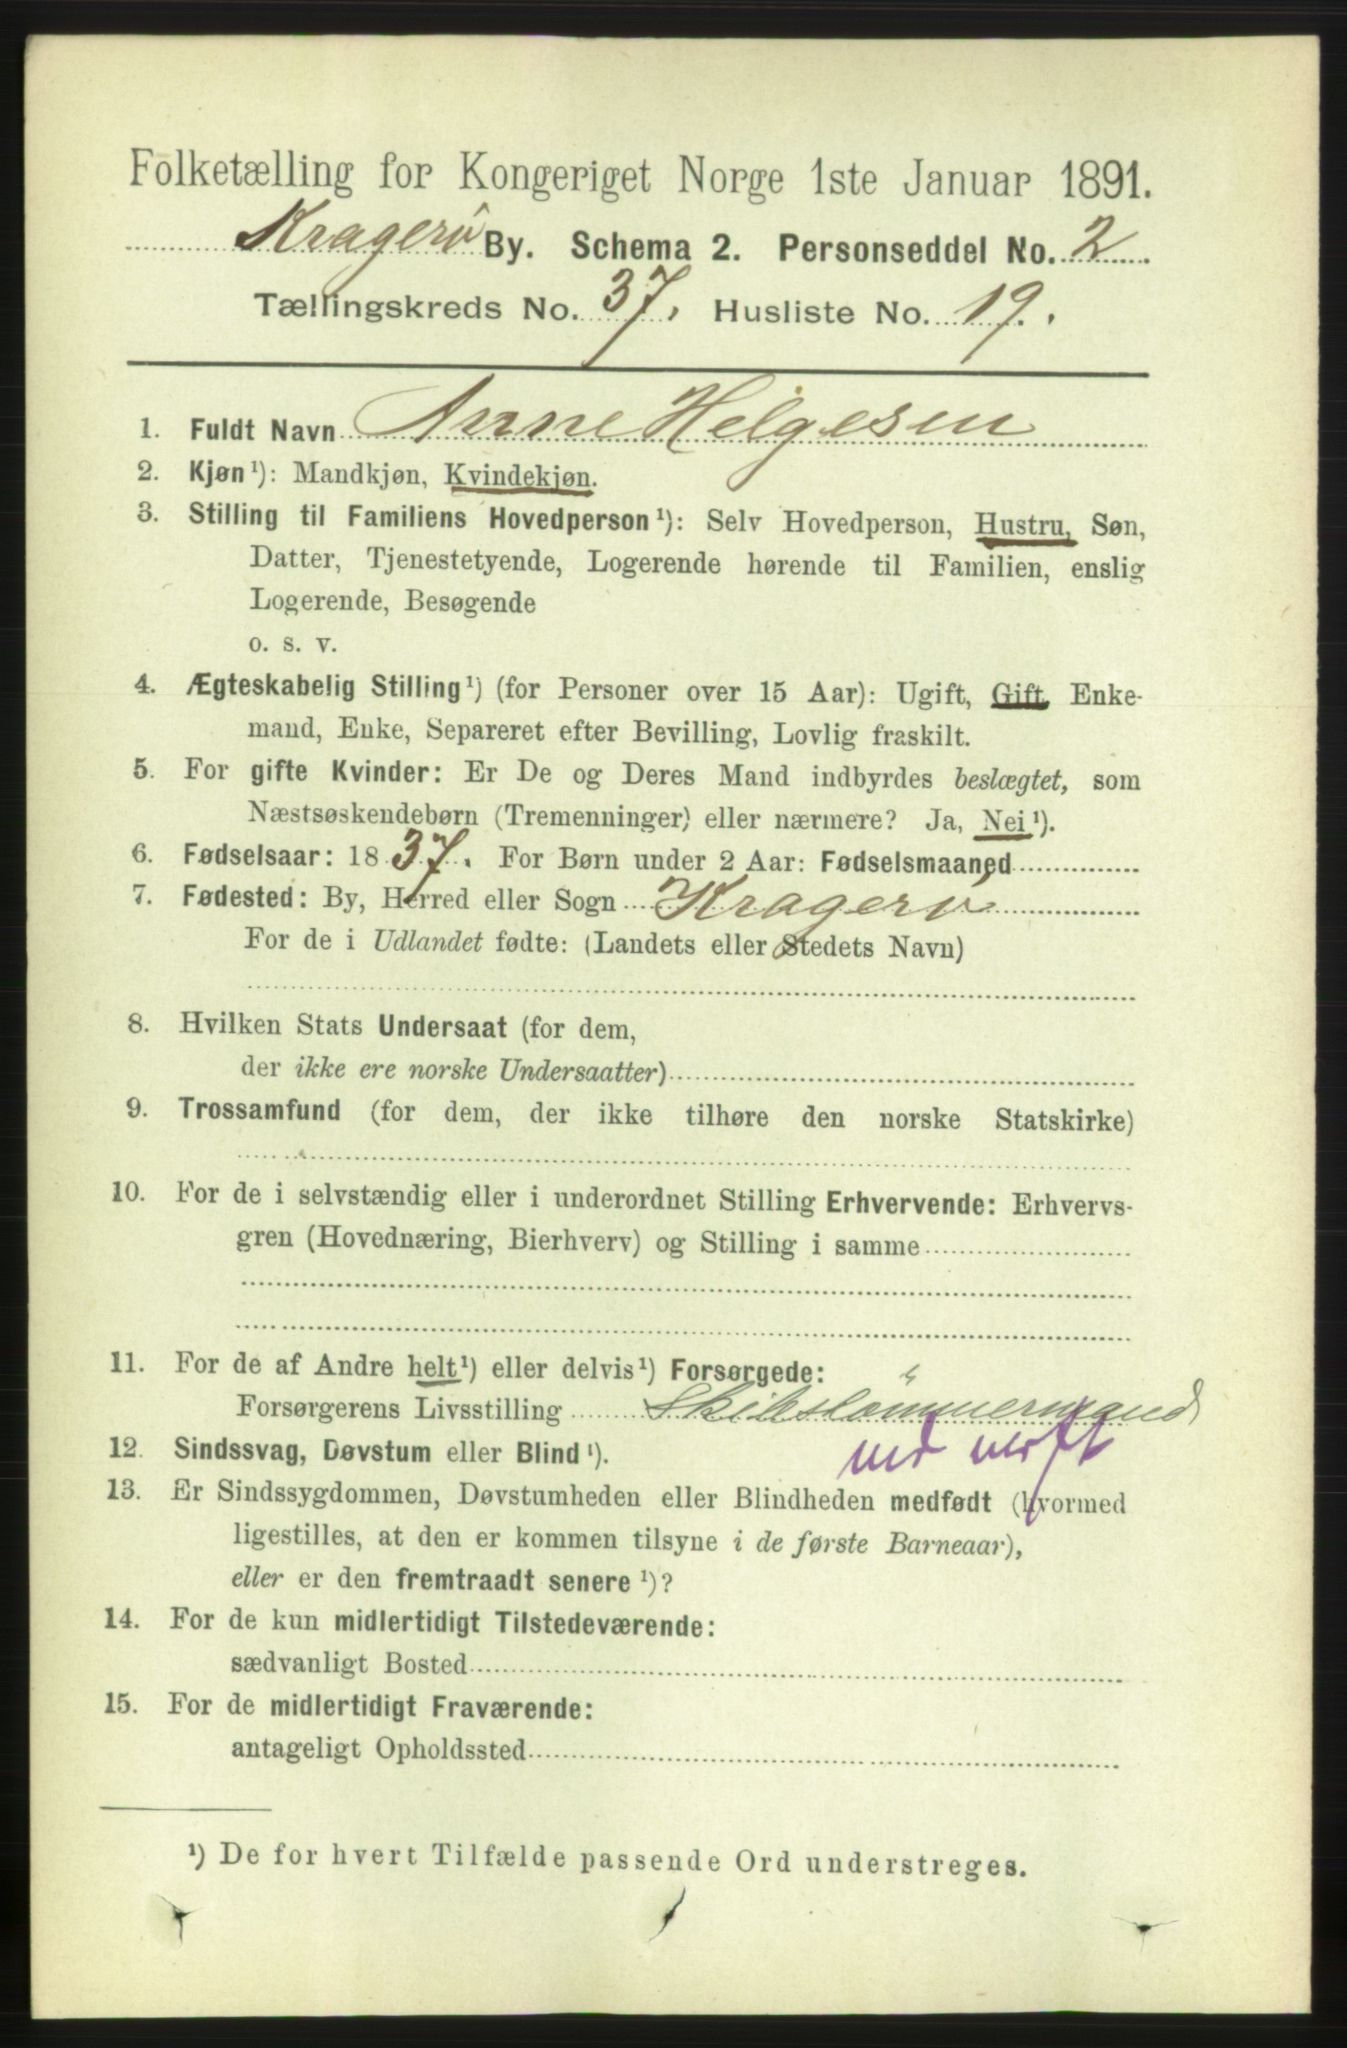 Folketælling for Kongeriget Norge 1ste Januar 1891.
Kragerö By. Schema 2. Personseddel No. 2
Tællingskreds No. 37. Husliste No. 19.
1. Fuldt Navn Anne Helgesen
2. Kjøn¹): Mandkjøn, Kvindekjøn.
3. Stilling til Familiens Hovedperson¹): Selv Hovedperson, Hustru, Søn,
Datter, Tjenestetyende, Logerende hørende til Familien, enslig
Logerende, Besøgende
o. s. v.
4. Ægteskabelig Stilling¹) (for Personer over 15 Aar): Ugift, Gift, Enke-
mand, Enke, Separeret efter Bevilling, Lovlig fraskilt.
5. For gifte Kvinder: Er De og Deres Mand indbyrdes beslægtet, som
Næstsøskendebørn (Tremenninger) eller nærmere? Ja, Nei¹).
6. Fødselsaar: 1837. For Børn under 2 Aar: Fødselsmaaned
7. Fødested: By, Herred eller Sogn Kragerö
For de i Udlandet fødte: (Landets eller Stedets Navn)
8. Hvilken Stats Undersaat (for dem,
der ikke ere norske Undersaatter)
9. Trossamfund (for dem, der ikke tilhøre den norske Statskirke)
10. For de i selvstændig eller i underordnet Stilling Erhvervende: Erhvervs-
gren (Hovednæring, Bierhverv) og Stilling i samme
11. For de af Andre helt¹) eller delvis¹) Forsørgede:
Forsørgerens Livsstilling Skibstömmermand
12. Sindssvag, Døvstum eller Blind¹).
13. Er Sindssygdommen, Døvstumheden eller Blindheden medfødt (hvormed
ligestilles, at den er kommen tilsyne i de første Barneaar),
eller er den fremtraadt senere¹)?
14. For de kun midlertidigt Tilstedeværende:
sædvanligt Bosted
15. For de midlertidigt Fraværende:
antageligt Opholdssted
¹) De for hvert Tilfælde passende Ord understreges.